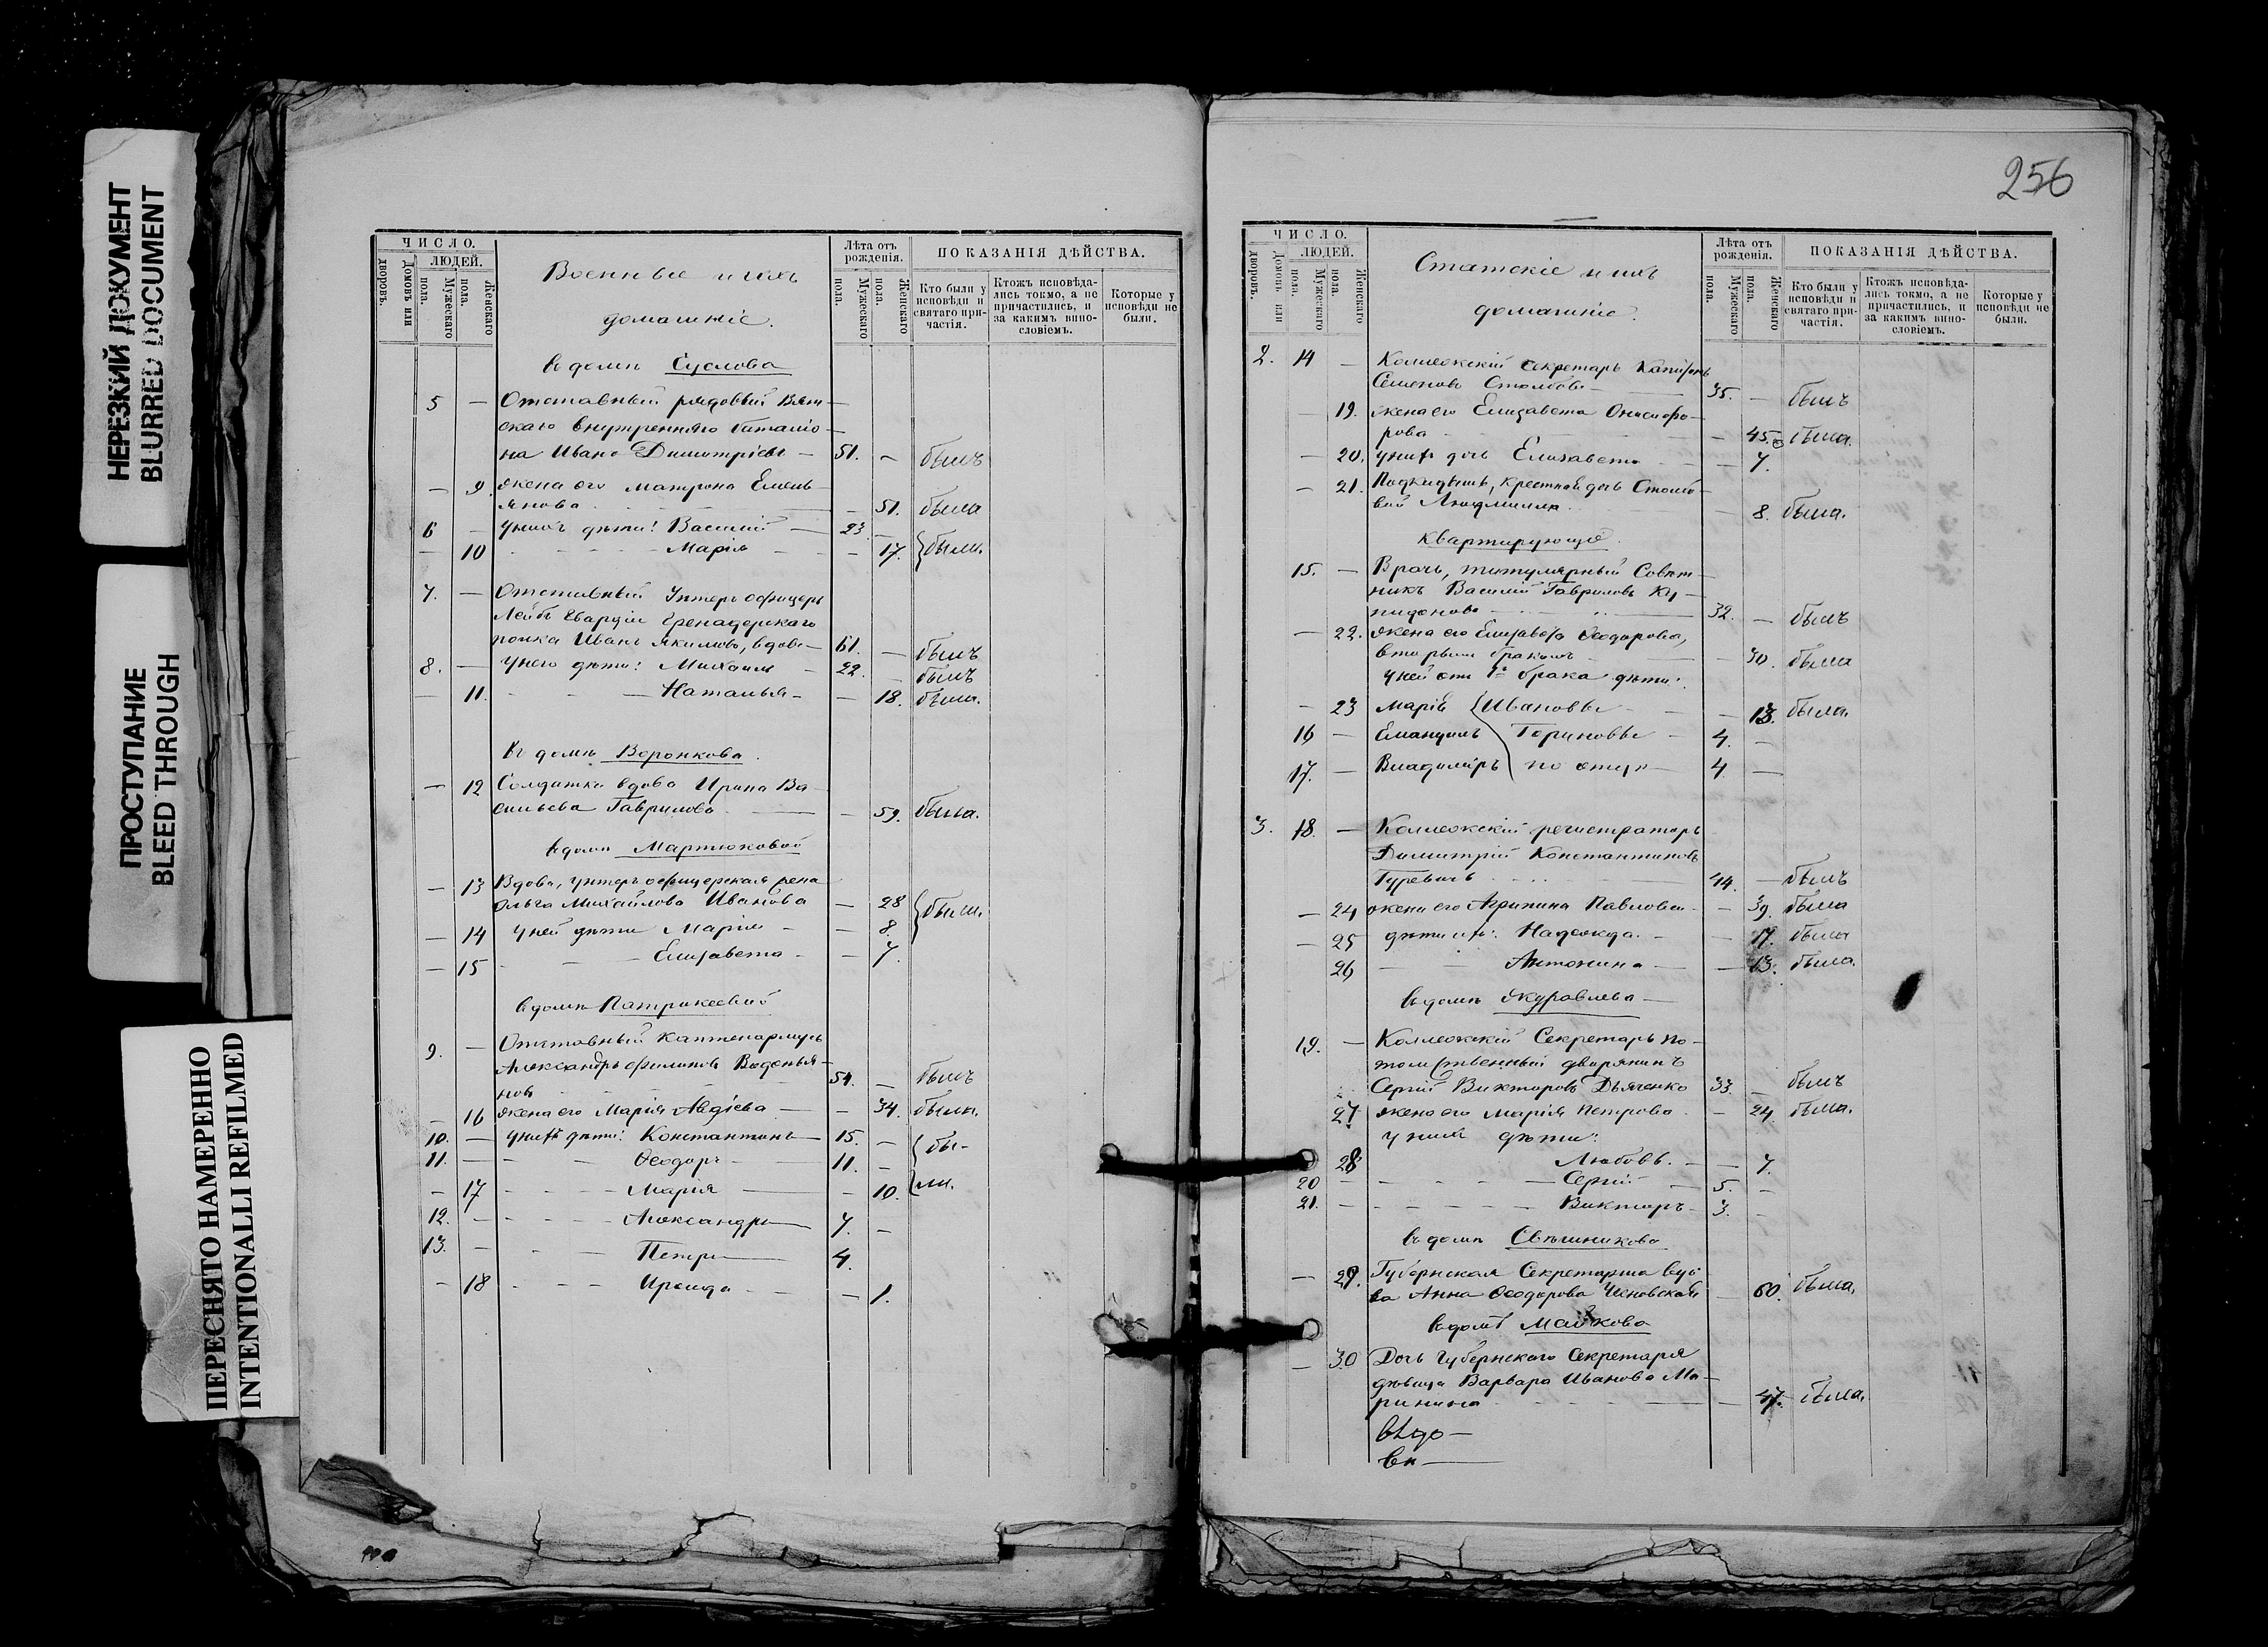 НЕРЕЗКИЙ ДОКУМЕНТ
BLURRED DOCUMENT
ПРОСТУПАНИЕ
BLEED THROUGH
ПЕРЕСНЯТО НАМЕРЕННО
INTENTIONALLI REFILMED
ЧИСЛО.
ЛЮДЕЙ.
дворовъ.
Домовъ или
Мужескаго пола.
Женскаго пола.
Военные и ихъ
домашніе.
Лѣта отъ рожденія.
Мужескаго пола.
Женскаго пола.
ПОКАЗАНІЯ ДѢЙСТВА.
Кто были у исповѣди и святаго причастія.
Ктожъ исповѣдались токмо, а не причастились, и за какимъ винословіемъ.
Которые у исповѣди не были.
въ домѣ Суслова
5 — Отставный рядовый Вят-
скаго внутренняго баталіо-
на Иванъ Димитріевъ — 51. — былъ
— 9 жена его Матрона Емель-
янова — 51. была
6 — у нихъ дѣти: Василій — 23 —
— 10 — Марія — 17. были.
7. — Отставный Унтеръ офицеръ
Лейбъ Гвардіи Гренадерскаго
полка Иванъ Якимовъ, вдовъ — 61. — былъ
8. — у него дѣти: Михаилъ — 22. — былъ
— 11. — Наталья — — 18. была.
въ домѣ Воронкова.
— 12 Солдатка вдова Ирина Ва-
сильева Гаврилова — — 59. была.
въ домѣ Мартюковой
— 13 Вдова, унтеръ офицерская жена
Ольга Михайлова Иванова — 28 были.
— 14 у ней дѣти Марія — — 8.
— 15 — Елизавета — — 7.
въ домѣ Патрикеевой
9. — Отставный каптенармусъ
Александръ Филиповъ Воденья-
новъ 54. — былъ
— 16 жена его Марія Авдіева — — 34. были.
10. — у нихъ дѣти: Константинъ — 15. — бы-
11. — Ѳеодоръ — 11. —
— 17 — Марія — — 10. ли.
12. — Александръ — 7. —
13. — Петръ — 4.
— 18 — Ираида — — 1.
256
ЧИСЛО.
ЛЮДЕЙ.
дворовъ.
Домовъ или
Мужескаго пола.
Женскаго пола.
Статскіе и ихъ
домашніе.
Лѣта отъ рожденія.
Мужескаго пола.
Женскаго пола.
ПОКАЗАНІЯ ДѢЙСТВА.
Кто были у исповѣди и святаго причастія.
Ктожъ исповѣдались токмо, а не причастились, и за какимъ винословіемъ.
Которые у исповѣди не были.
2. 14 — Коллежскій секретарь Капитонъ
Семеновъ Столбовъ — 35. — былъ
— 19. жена его Елизавета Онисифо-
рова — 45. была.
— 20. у нихъ дочь Елизавета — 7.
— 21. Подкидышъ, крестная дочь Столбо-
вой Людмилла — 8. была.
Квартирующіе.
15. — Врачъ, титулярный Совѣт-
никъ Василій Гавриловъ Ку-
пидоновъ — 32. — былъ
— 22. жена его Елизавета Ѳеодоровна,
вторымъ бракомъ — 30. была
у ней отъ 1го брака дѣти:
— 23 Марія Ивановы — — 13. была.
16 — Емануилъ Гориновы — 4. —
17. — Владиміръ по отцу — 4. —
3. 18. — Коллежскій регистраторъ
Димитрій Константиновъ
Гуревичъ 44. — былъ
— 24 жена его Агрипина Павловна — — 39. была
— 25 дѣти ихъ: Надежда. — — 17. была
26 — Антонина — — 13. была.
въ домѣ Журавлева —
19. — Коллежскій Секретарь по-
томственный дворянинъ
Сергій Викторовъ Дьяченко 33. — былъ
27 жена его Марія Петрова — 24. была.
у нихъ дѣти:
28 Любовь. — — 7.
20 — Сергій — 5. —
21. — Викторъ — 3. —
въ домѣ Свѣшникова
— 29. Губернская Секретарша вдо-
ва Анна Ѳеодорова — 60. была.
въ домѣ Майкова
— 30 Дочь Губернскаго Секретаря
дѣвица Варвара Иванова Ма-
ринина — 47. была.